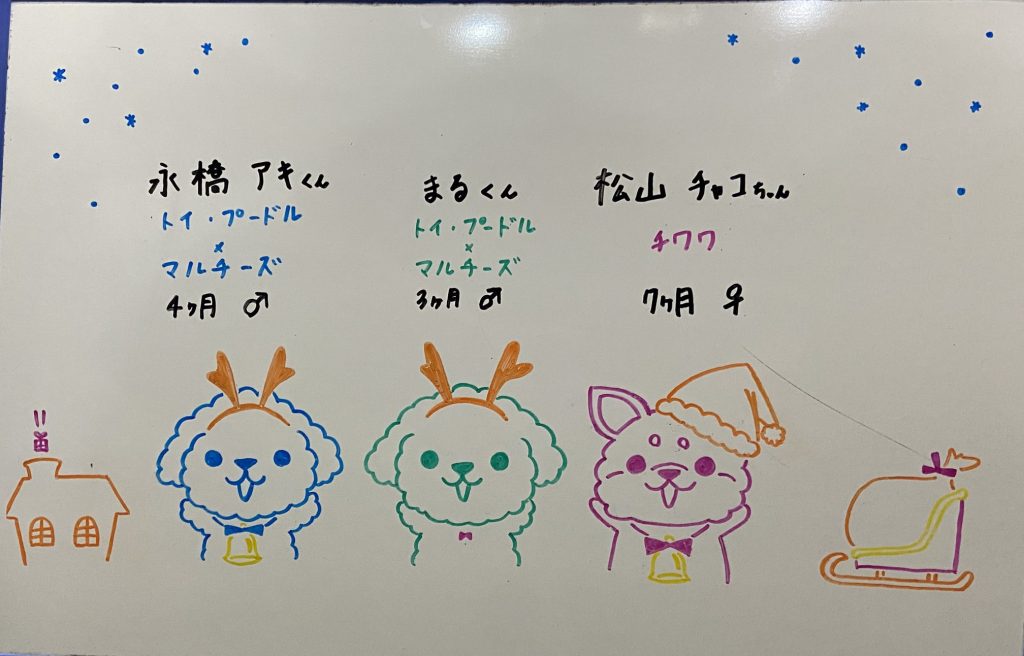 永橋 アキくん
トイ・プードル
×
マルチーズ
4ヶ月 ♂
まるくん
トイ・プードル
×
マルチーズ
3ヶ月 ♂
松山 チャコちゃん
チワワ
7ヶ月 ♀
!!